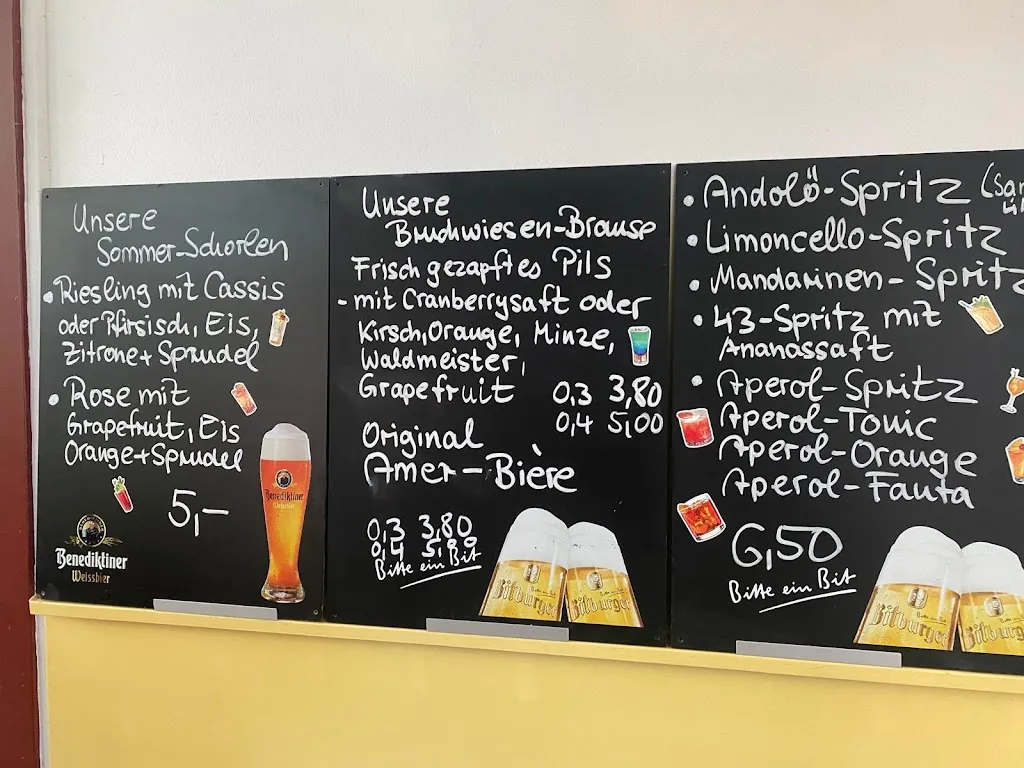 Unsere
Sommer-Schorlen
• Riesling mit Cassis
oder Pfirsisch, Eis,
Zitrone + Sprudel
• Rose mit
Grapefruit, Eis
Orange + Sprudel
5,-
Benediktiner
Weissbier
Benediktiner
Weissbier
Unsere
Bruchwiesen-Brause
Frisch gezapftes Pils
- mit Cranberrysaft oder
Kirsch, Orange, Minze,
Waldmeister,
Grapefruit
0,3 3,80
0,4 5,00
Original
Amer-Bière
0,3 3,80
0,4 5,00
Bitte ein Bit
Bitburger
Bitburger
• Andolö-Spritz (Sar
• Limoncello-Spritz
• Mandarinen-Spritz
• 43-Spritz mit
Ananassaft
• Aperol-Spritz
Aperol-Tonic
Aperol-Orange
Aperol-Fanta
6,50
Bitte ein Bit
Bitburger
Bitburger